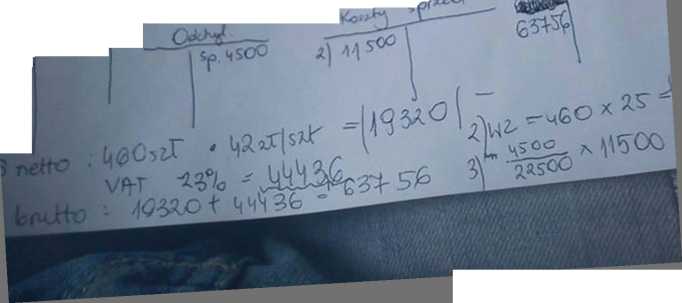 Odchyl.
Sp. 4500
Koszty
2) 11500
63756
netto : 460szt • 42zł/szt = 19320
VAT 23% = 44436
brutto : 19320 + 44436 = 63756
2) WZ = 460 × 25 =
3) 4500
22500 × 11500